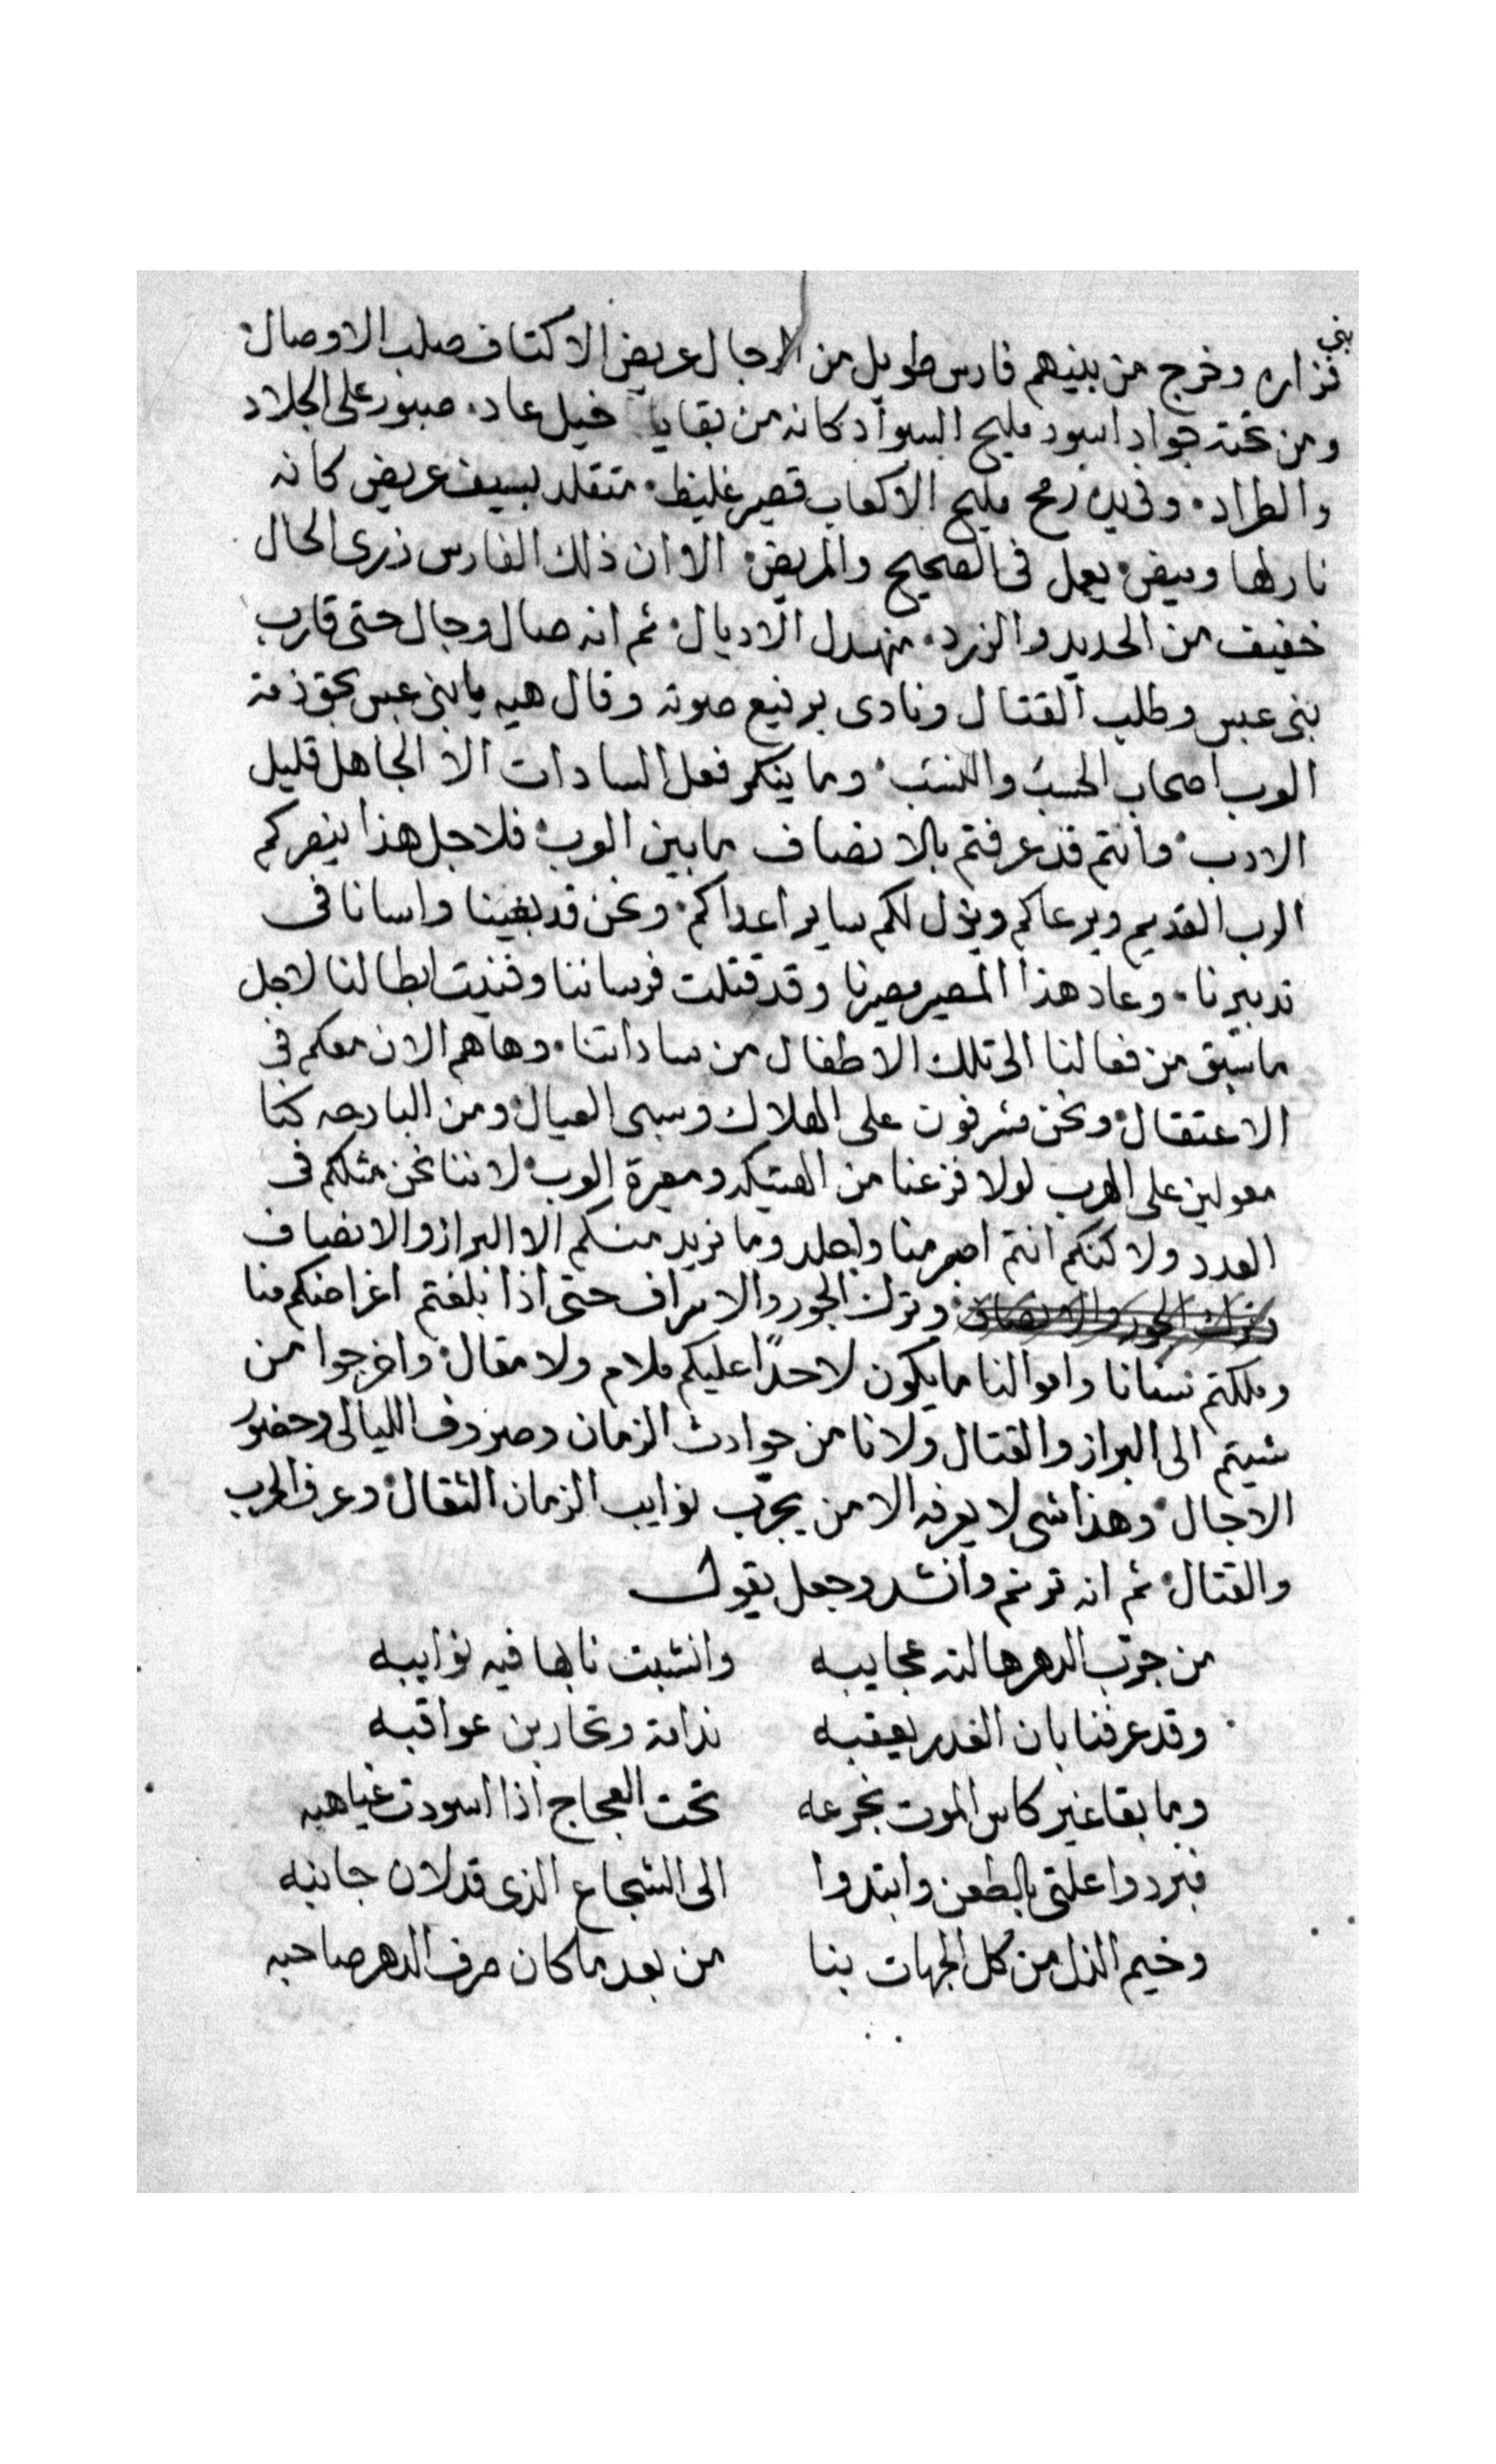 بنى
فزاره وخرج من بينهم فارس طويل من الرجال عريض الاكتاف صلب الاوصال
ومن تحته جواد اسود مليح السواد كانه من بقايا خيل عاد. صبور على الجلاد
والطراد. وفى يده رمح مليح الاكعاب قصير غليظ. متقلد بسيف عريض كانه
نار لها وميض. يعمل فى الصحيح والمريض. الا ان ذلك الفارس زرى الحال
خفيف من الحديد والزرد. منهدل الاديال. ثم انه صال وجال حتى قارب
بنى عبس وطلب القتال ونادى برفيع صوته وقال هيه يا بنى عبس بحق ذمة
العرب اصحاب الحسب والنسب. وما ينكر فعل السادات الا الجاهل قليل
الادب. وانتم قد عرفتم بالانصاف مابين العرب. فلاجل هذا ينصركم
الرب القديم ويرعاكم ويذل لكم ساير اعداكم. ونحن قد بغينا واسانا فى
تدبيرنا. وعاد هذا المصير مصيرنا وقد قتلت فرساننا وفنيت ابطالنا لاجل
ما سبق من فعالنا الى تلك الاطفال من ساداتنا. وها هم الان معكم فى
الاعتقال. ونحن مشرفون على الهلاك وسبى العيال. ومن البارحه كنا
معولين على الهرب لولا فزعنا من الهتيكه ومعيرة العرب. لاننا نحن مثلكم فى
العدد ولاكنكم انتم اصبر منا واجلد وما نريد منكم الا البراز والانصاف
وترك الجور والاسراف حتى اذا بلغتم اغراضكم منا
وملكتم نسانا واموالنا ما يكون لاحدًا عليكم ملام ولا مقال. واخرجوا من
شيتم الى البراز والقتال ولانا من حوادث الزمان وصروف الليالى وحضور
الاجال. وهذا شى لا يعرفه الا من يجرّب نوايب الزمان الثقال. وعرف الحرب
والقتال. ثم انه ترنم وانشد وجعل يقول
من جرّب الدهر هالته عجايبه وانشبت نابها فيه نوايبه
وقد عرفنا بان الغدر يعقبه ندامة وتحاربن عواقبه
وما بقا غير كاس الموت نجرعه تحت العجاج اذا اسودت غياهبه
فبردوا علتى بالطعن وابتدوا الى الشجاع الذى قد لان جانبه
وخيم الذل من كل الجهات بنا من بعد ما كان صرف الدهر صاحبه